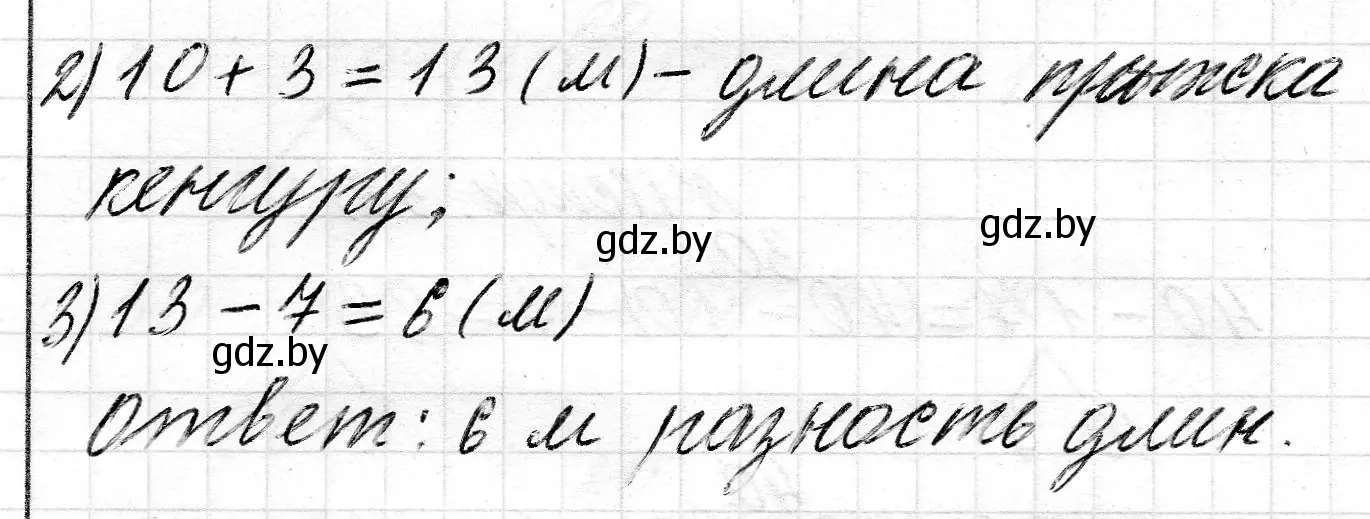 2) 10 + 3 = 13 (м) - длина прыжка
кенгуру;
gdz.by
gdz.by
3) 13 - 7 = 6 (м)
gdz.by
Ответ: 6 м разность длин.